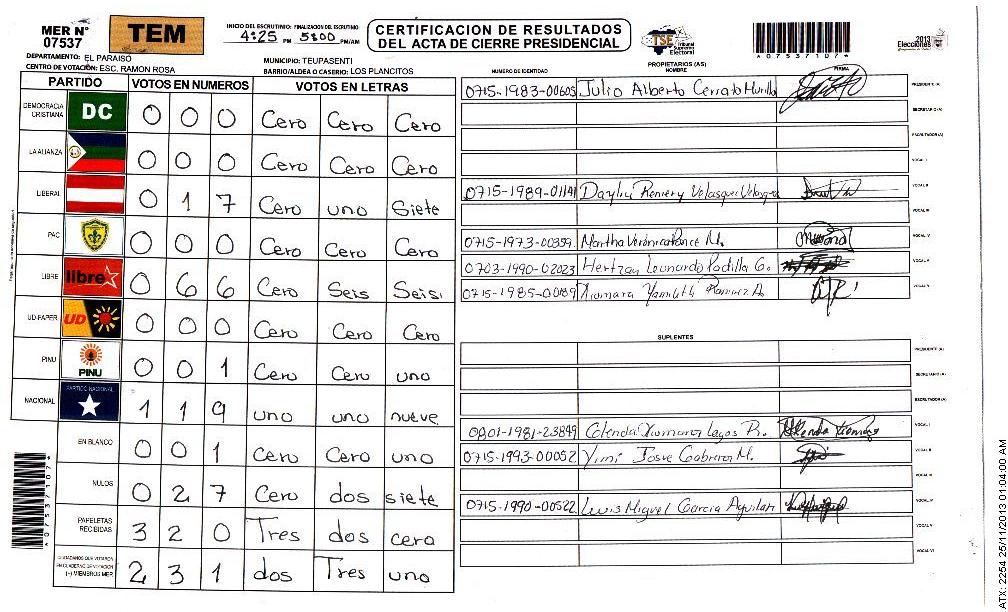 MER N° 07537
TEM
INICIO DEL ESCRUTINIO: 4:25 PM FINALIZACION DEL ESCRUTINIO 5:00 PM/AM
CERTIFICACION DE RESULTADOS
DEL ACTA DE CIERRE PRESIDENCIAL
TSE Tribunal Supremo Electoral
*07537107*
2013 Elecciones
DEPARTAMENTO: EL PARAISO
MUNICIPIO: TEUPASENTI
CENTRO DE VOTACIÓN: ESC. RAMON ROSA
BARRIO/ALDEA O CASERIO: LOS PLANCITOS
PARTIDO VOTOS EN NUMEROS VOTOS EN LETRAS
DEMOCRACIA CRISTIANA DC 0 0 0 Cero Cero Cero
LA ALIANZA 0 0 0 Cero Cero Cero
LIBERAL 0 1 7 Cero uno Siete
PAC 0 0 0 Cero Cero Cero
LIBRE libre 0 6 6 Cero Seis Seis
UD-FAPER UD 0 0 0 Cero Cero Cero
PINU PINU 0 0 1 Cero Cero uno
NACIONAL PARTIDO NACIONAL 1 1 9 uno uno nueve
EN BLANCO 0 0 1 Cero Cero uno
NULOS 0 2 7 Cero dos siete
PAPELETAS RECIBIDAS 3 2 0 Tres dos cero
CIUDADANOS QUE VOTARON EN CUADERNO DE VOTACION (+) MIEMBROS MER 2 3 1 dos Tres uno
PROPIETARIOS (AS)
NUMERO DE IDENTIDAD NOMBRE FIRMA
0715-1983-00605 Julio Alberto Cerrato Murillo PRESIDENTE (A)
SECRETARIO (A)
ESCRUTADOR (A)
VOCAL I
0715-1989-01141 Velasquez VOCAL II
VOCAL III
0715-1973-00359 Martha Veronica Ponce M. VOCAL IV
0703-1990-02023 Hertzan Leonardo Padilla G. VOCAL V
0715-1985-00189 Xiomara Ramirez A.
SUPLENTES
PRESIDENTE (A)
SECRETARIO (A)
ESCRUTADOR (A)
0801-1981-23849 Xiomara Lagos P. VOCAL I
0715-1993-00052 Yimi Josue Cabrera M. VOCAL II
VOCAL III
0715-1990-00522 Luis Miguel Garcia Aguilar VOCAL IV
VOCAL V
VOCAL VI
*07537107*
ATX: 2254 25/11/2013 01:04:00 AM